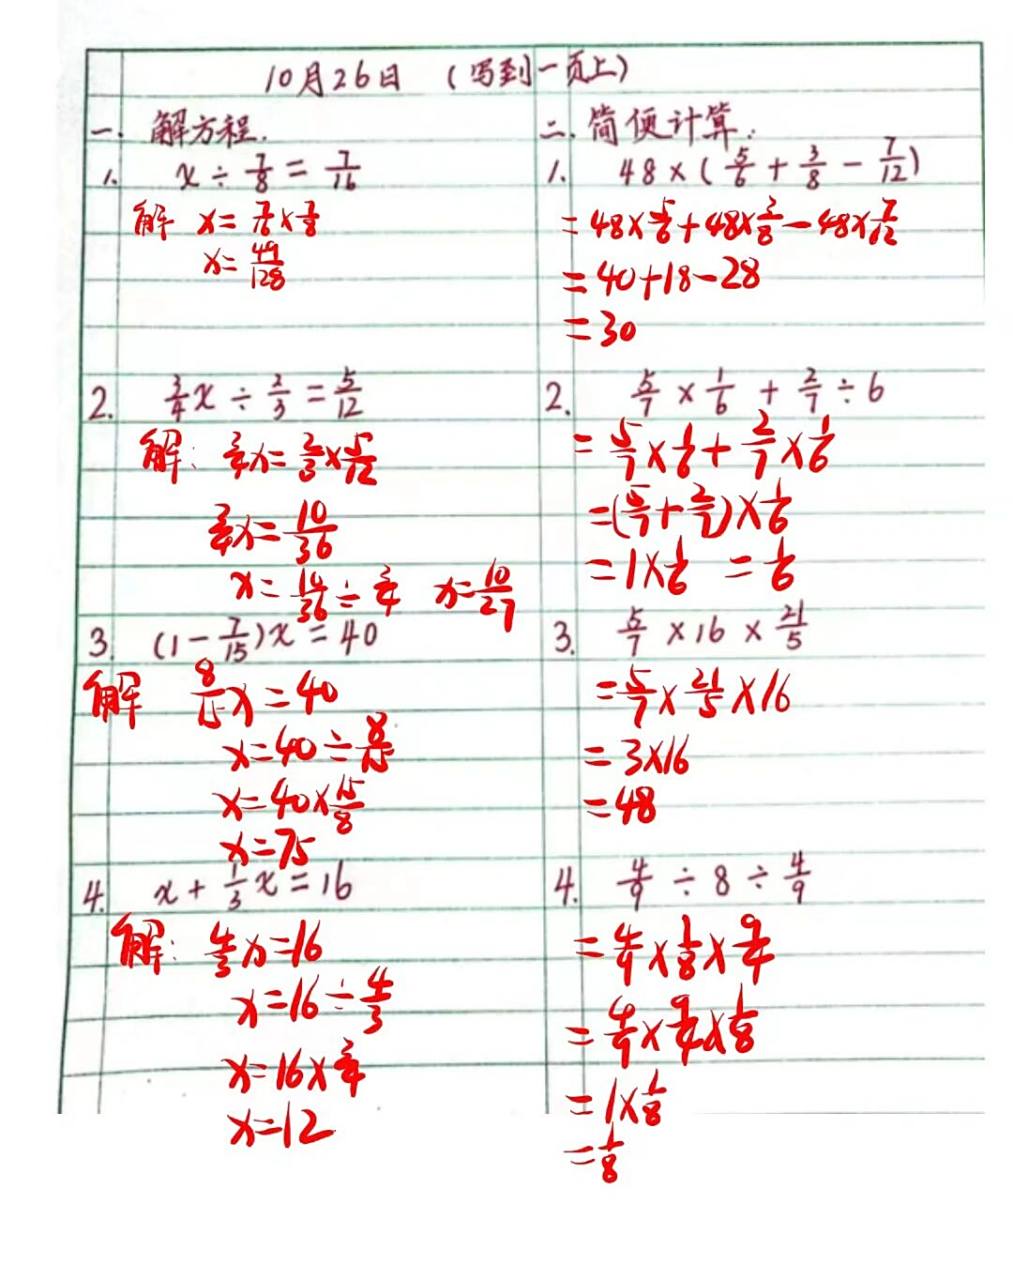 10月26日 (写到一页上)
一. 解方程.
1. x ÷ 7/8 = 7/16
解 x = 7/16 × 7/8
x = 49/128
2. 3/4 x ÷ 2/3 = 5/12
解: 3/4 x = 2/3 × 5/12
3/4 x = 10/36
x = 10/36 ÷ 3/4 x = 10/27
3. (1 - 7/15)x = 40
解 8/15 x = 40
x = 40 ÷ 8/15
x = 40 × 15/8
x = 75
4. x + 1/3 x = 16
解: 4/3 x = 16
x = 16 ÷ 4/3
x = 16 × 3/4
x = 12
二. 简便计算:
1. 48 × (5/6 + 3/8 - 7/12)
= 48 × 5/6 + 48 × 3/8 - 48 × 7/12
= 40 + 18 - 28
= 30
2. 5/7 × 1/6 + 2/7 ÷ 6
= 5/7 × 1/6 + 2/7 × 1/6
= (5/7 + 2/7) × 1/6
= 1 × 1/6 = 1/6
3. 5/7 × 16 × 21/5
= 5/7 × 21/5 × 16
= 3 × 16
= 48
4. 4/9 ÷ 8 ÷ 4/9
= 4/9 × 1/8 × 9/4
= 4/9 × 9/4 × 1/8
= 1 × 1/8
= 1/8